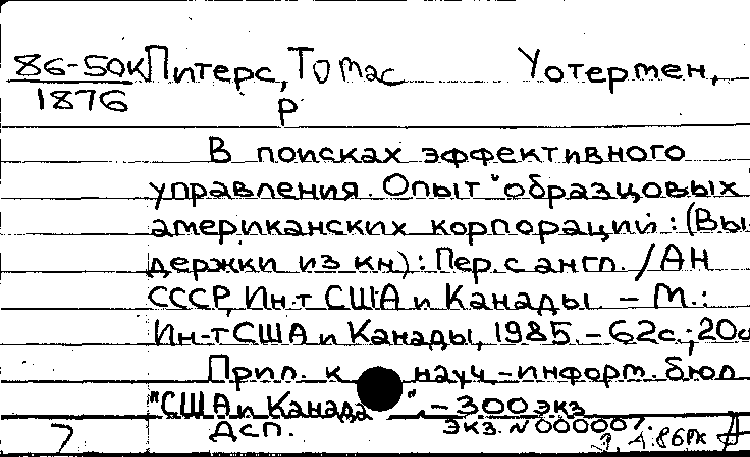 86-50К Питерс, Томас Уотермен,
1876 Р
В поисках эффективного
управления. Опыт "образцовых
американских корпораций: (Вы-
держки из кн): Пер. с англ. / АН
СССР, Ин-т США и Канады. - М.:
Ин-т США и Канады, 1985. - 62с.; 20с
Прил. к науч.-информ. бюл
"США и Канада". - 300 экз
7 ДСП. экз. N 000007.